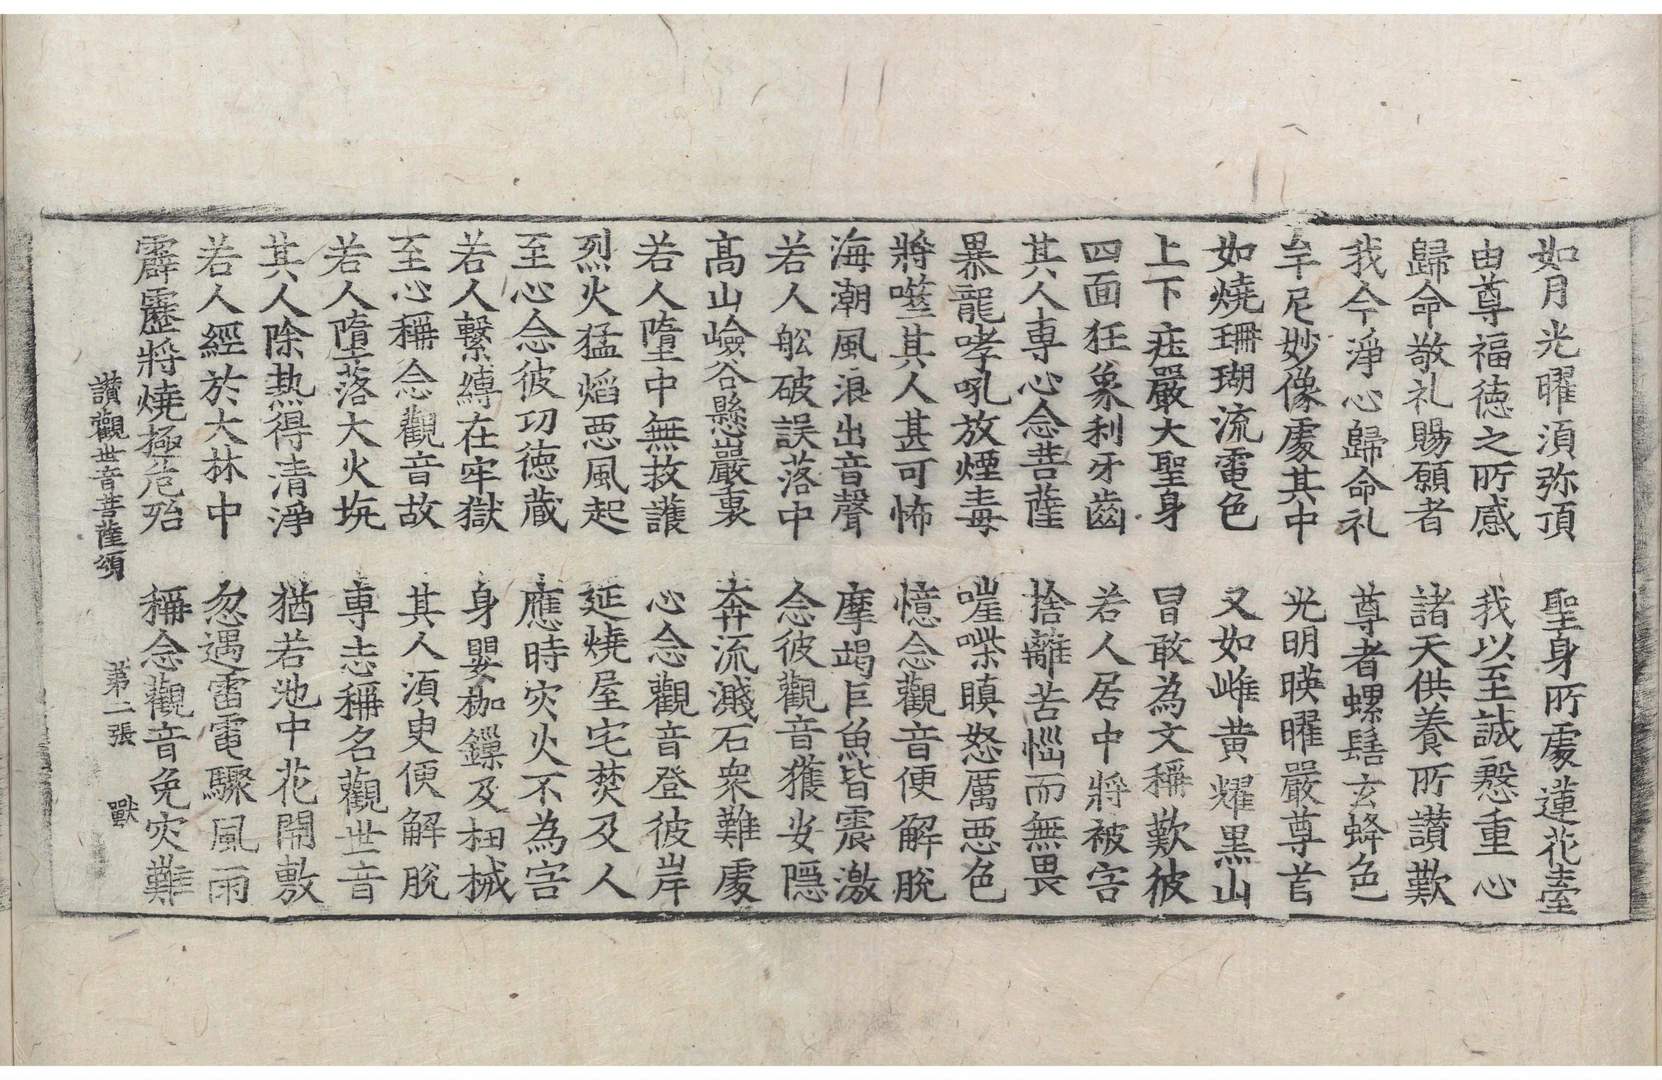 如月光曜湏弥頂　聖身所處蓮花臺
由尊福徳之所感　我以至誠慇重心
歸命敬礼賜願者　諸天供養所讃歎
我今淨心歸命礼　尊者螺髻玄蜂色
牟尼妙像處其中　光明暎曜嚴尊首
如燒珊瑚流電色　又如雌黄耀黒山
上下庄嚴大聖身　冒敢為文稱歎彼
四面狂象利牙齒　若人居中將被害
其人專心念菩薩　捨離苦惱而無畏
暴龍哮吼放煙毒　嘊喍瞋怒厲惡色
將噬其人甚可怖　憶念觀音便解脫
海潮風浪出音聲　摩竭巨魚皆震激
若人舩破誤落中　念彼觀音獲安隱
高山嶮谷懸巖裏　奔流濺石衆難處
若人墮中無救護　心念觀音登彼岸
烈火猛焰惡風起　延燒屋宅焚及人
至心念彼功徳藏　應時灾火不為害
若人繫縛在牢獄　身嬰枷鏁及杻械
至心稱念觀音故　其人湏臾便解脫
若人墮落大火坑　專志稱名觀世音
其人除热得清淨　猶若池中花開敷
若人經於大林中　忽遇雷電驟風雨
霹靂將燒極危殆　稱念觀音免灾難
讃觀世音菩薩頌　第二張　獸